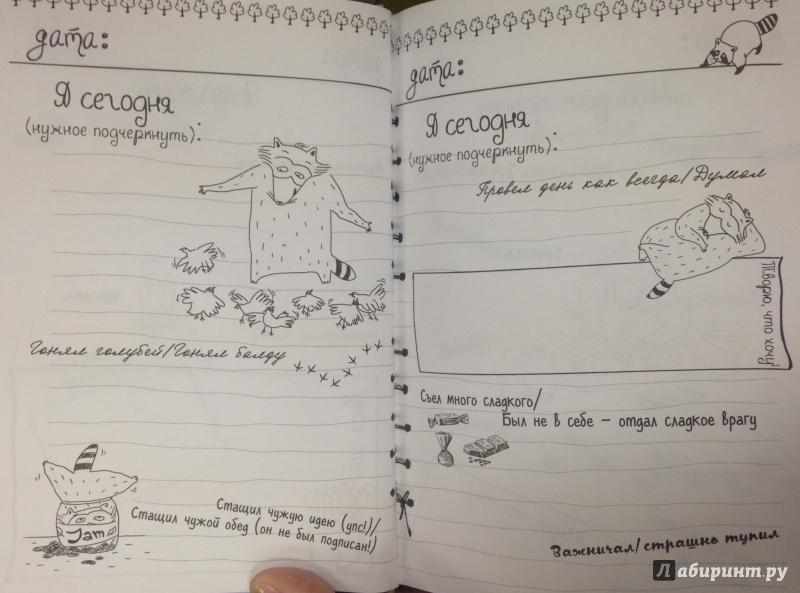 дата:
Я сегодня
(нужное подчеркнуть):
Гонял голубей/Гонял балду
Jam
Стащил чужую идею (упс!)/
Стащил чужой обед (он не был подписан!)
дата:
Я сегодня
(нужное подчеркнуть):
Провел день как всегда/Думал
Творю, что хочу!
Съел много сладкого/
Был не в себе – отдал сладкое врагу
Важничал/страшно тупил
Лабиринт.ру